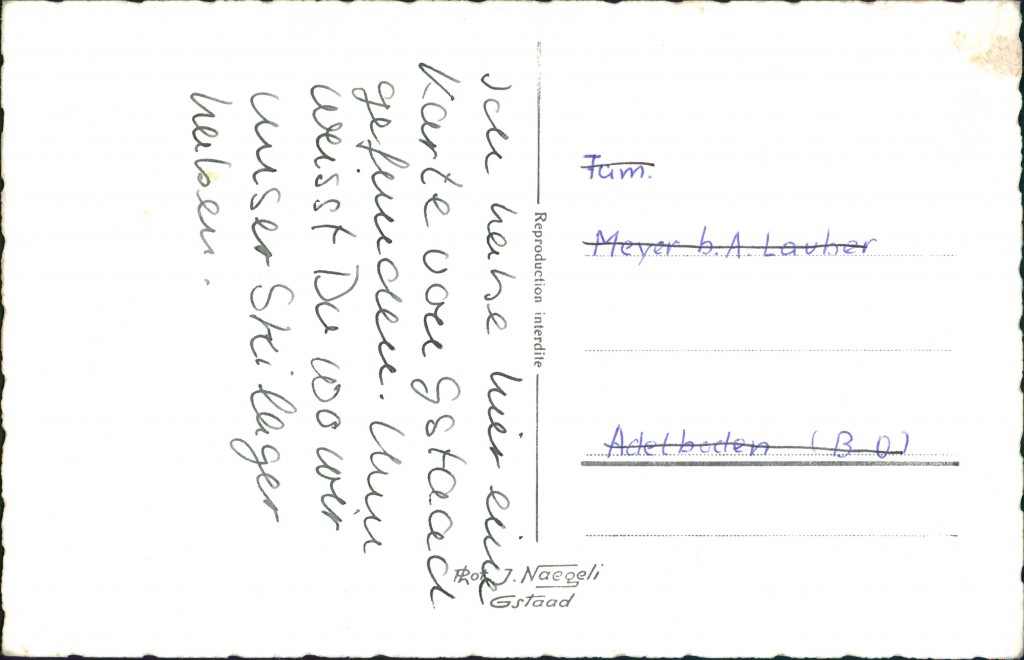 Ich habe hier eine
Karte von Gstaad
gefunden. Nun
weisst Du wo wir
unser Skilager
haben.
Reproduction interdite
Phot. J. Naegeli
Gstaad
Fam.
Meyer b. A. Lauber
Adelboden (B O)